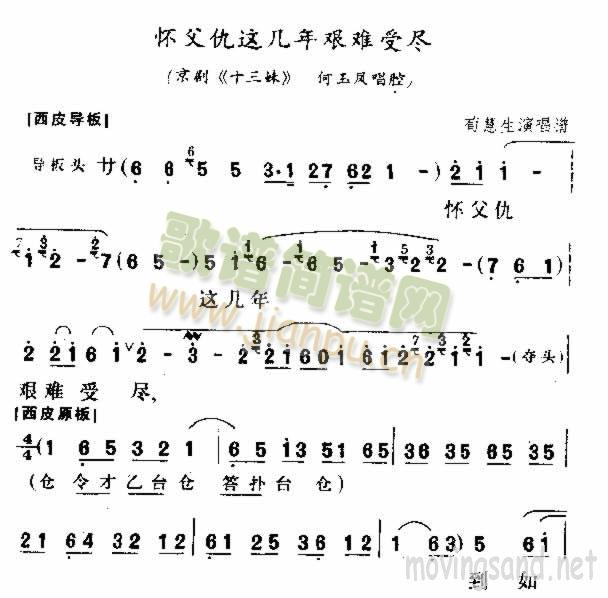 怀父仇这几年艰难受尽
(京剧《十三妹》 何玉凤唱腔)
[西皮导板]
荀慧生演唱谱
导板头 サ(6 6 5 5 3·1 27 62 1 -) 2 1 i -
怀父仇
1 2 - 7 (6 5 -) 5 i 6 - 6 5 - 3 2 2 - (7 6 1)
这几年
2 2i 6 i ∨ 2 - 3 - 2 21 60i 61 2 2 1 1 - (夺头)
艰难受 尽,
[西皮原板]
4/4 (1 65 32 1 | 6 5 13 51 65 | 36 35 65 35
(仓 令才乙台仓 答扑台 仓)
21 64 32 12 | 61 56 12 16 | 1 63) 5 6i
到 如
歌谱简谱网
www.jianpu.cn
movingsand.net